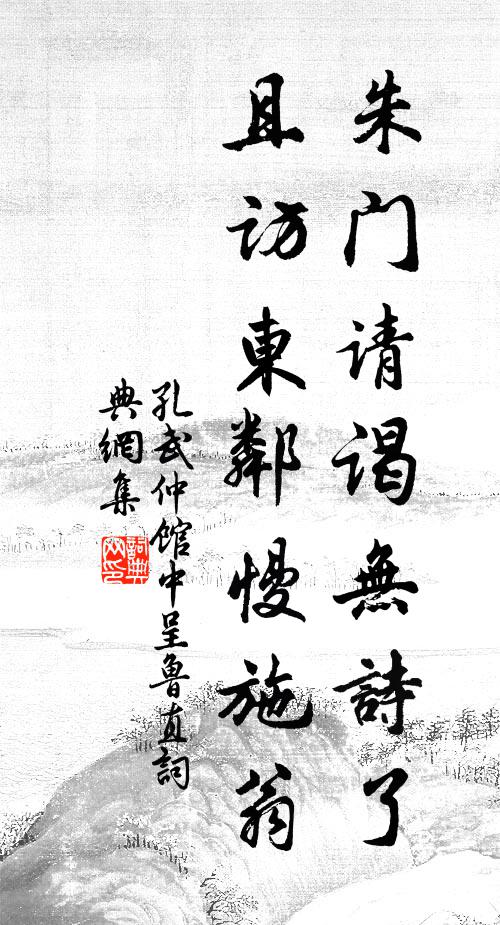 朱门请谒無詩了
且访東鄰慢施翁
孔武仲館中呈魯直詞
典網集
詞典网印